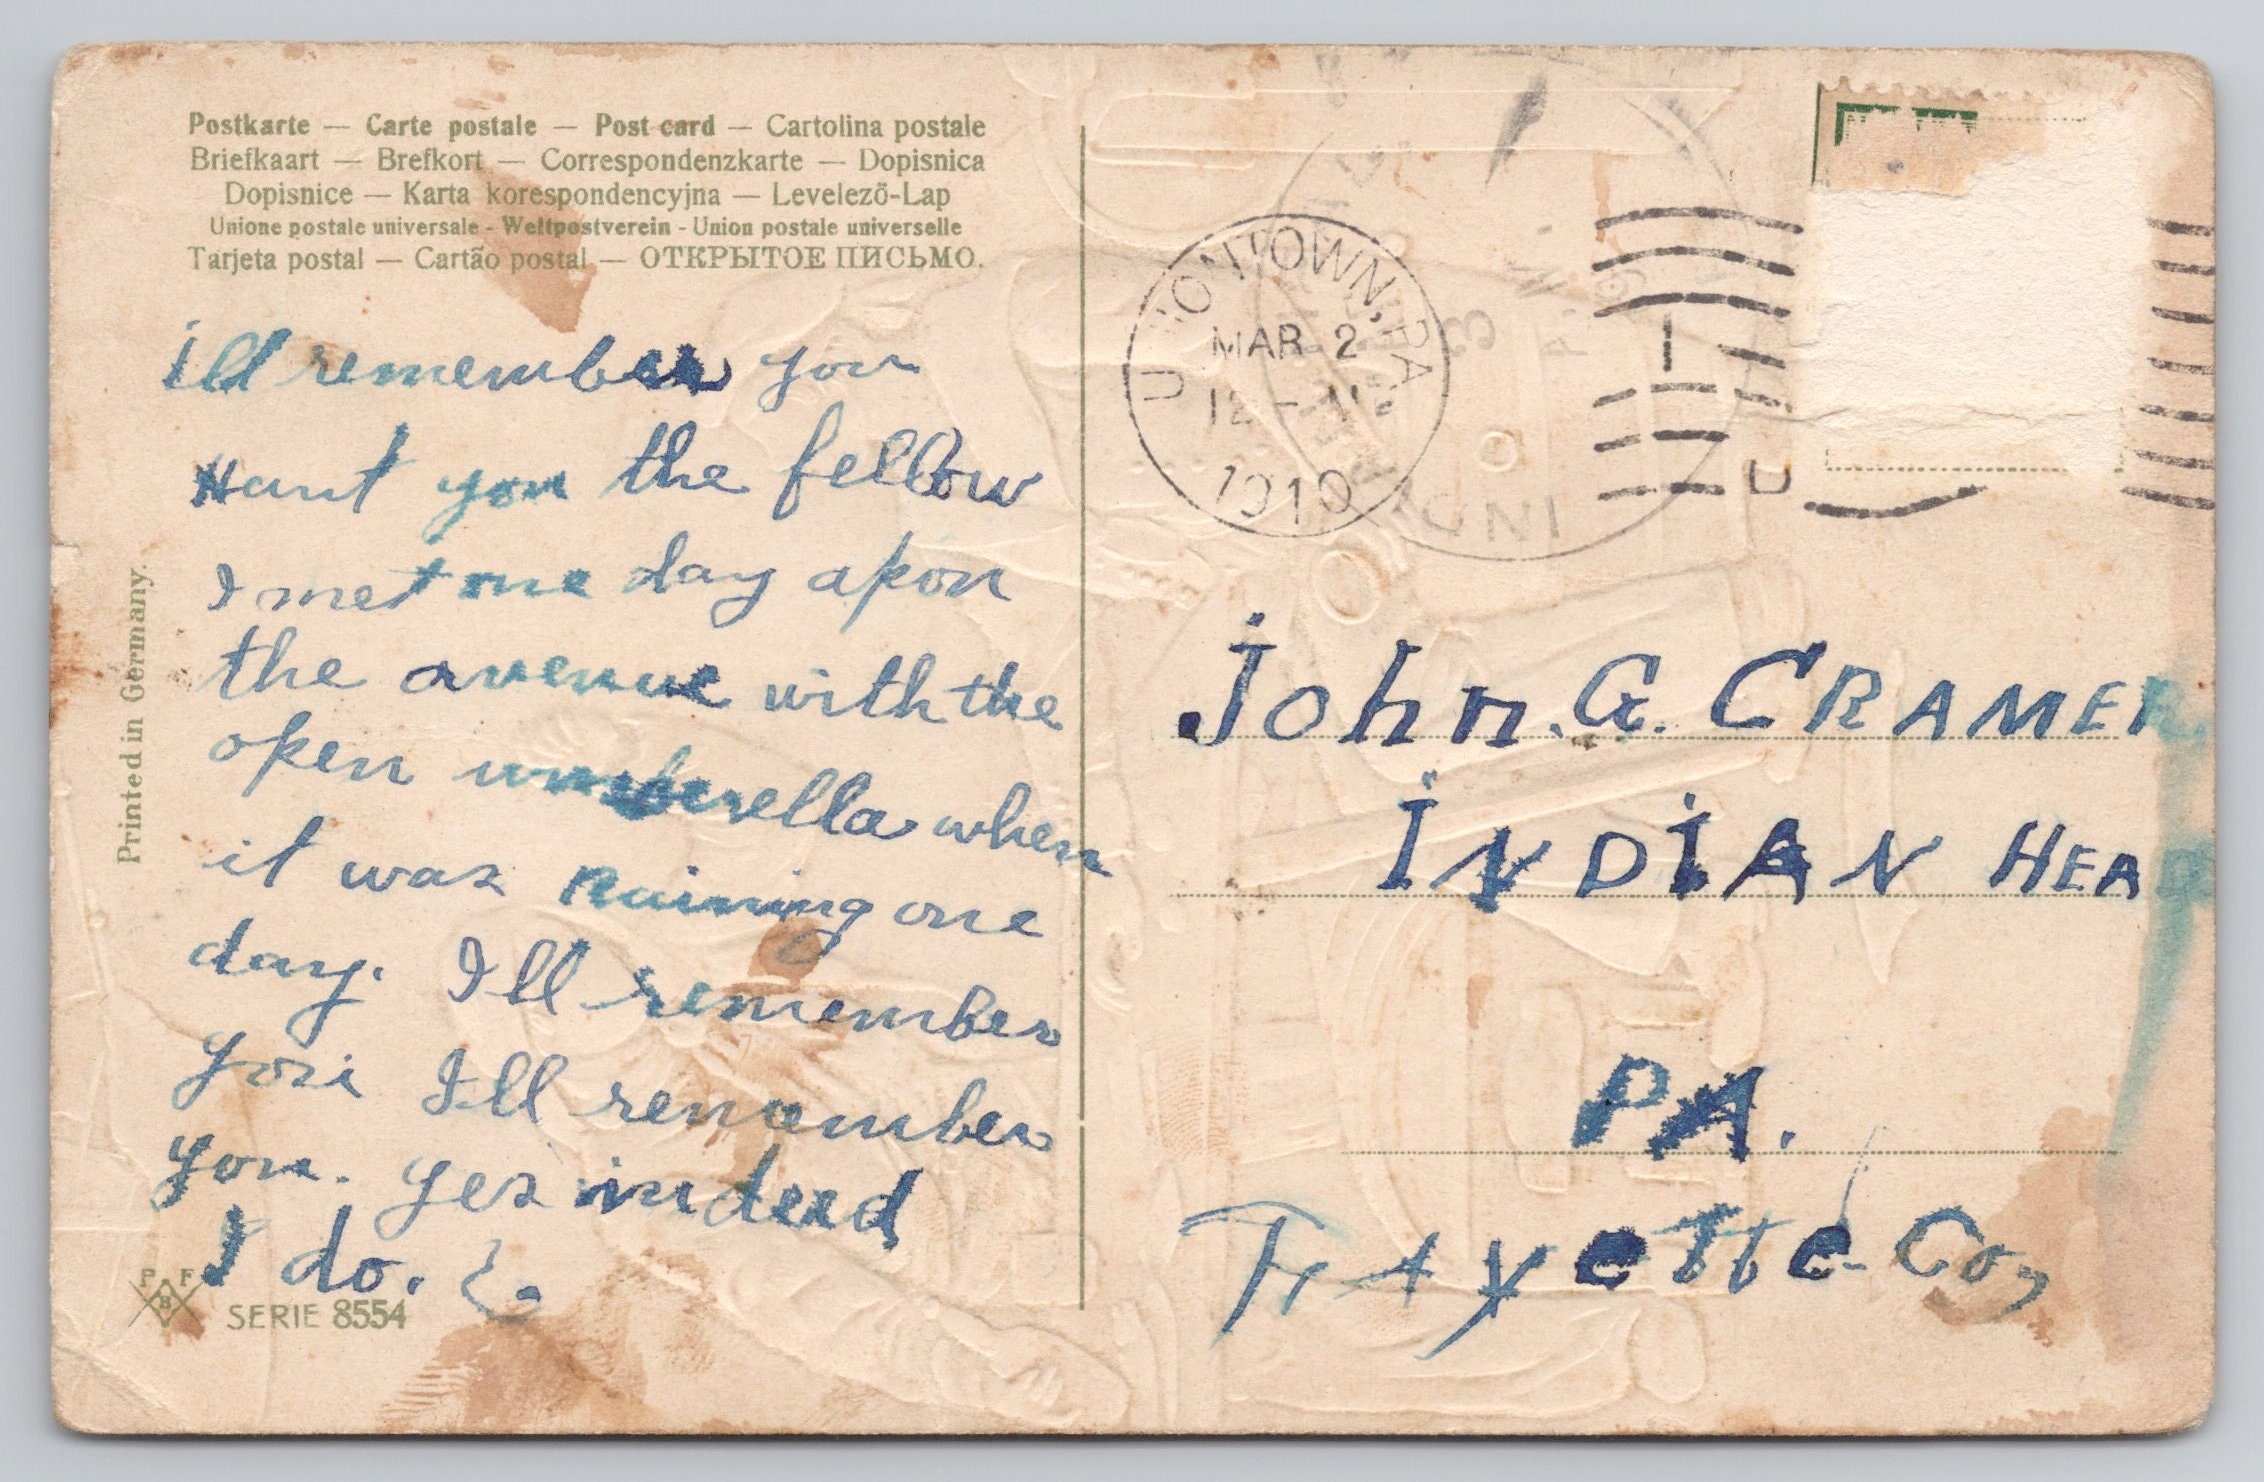 Postkarte — Carte postale — Post card — Cartolina postale
Briefkaart — Brefkort — Correspondenzkarte — Dopisnica
Dopisnice — Karta korespondencyjna — Levelező-Lap
Unione postale universale - Weltpostverein - Union postale universelle
Tarjeta postal — Cartão postal — ОТКРЫТОЕ ПИСЬМО.
Printed in Germany.
ill remember you
Hant you the fellow
I met one day apon
the avenue with the
open umberella when
it was Raining one
day. I'll remember
you I'll remember
you. yes indeed
I do.
P F
B
SERIE 8554
UNIONTOWN, PA
MAR 2
12
1910
John. G. CRAMER
INDIAN HEAD
PA.
FAyette-Co,